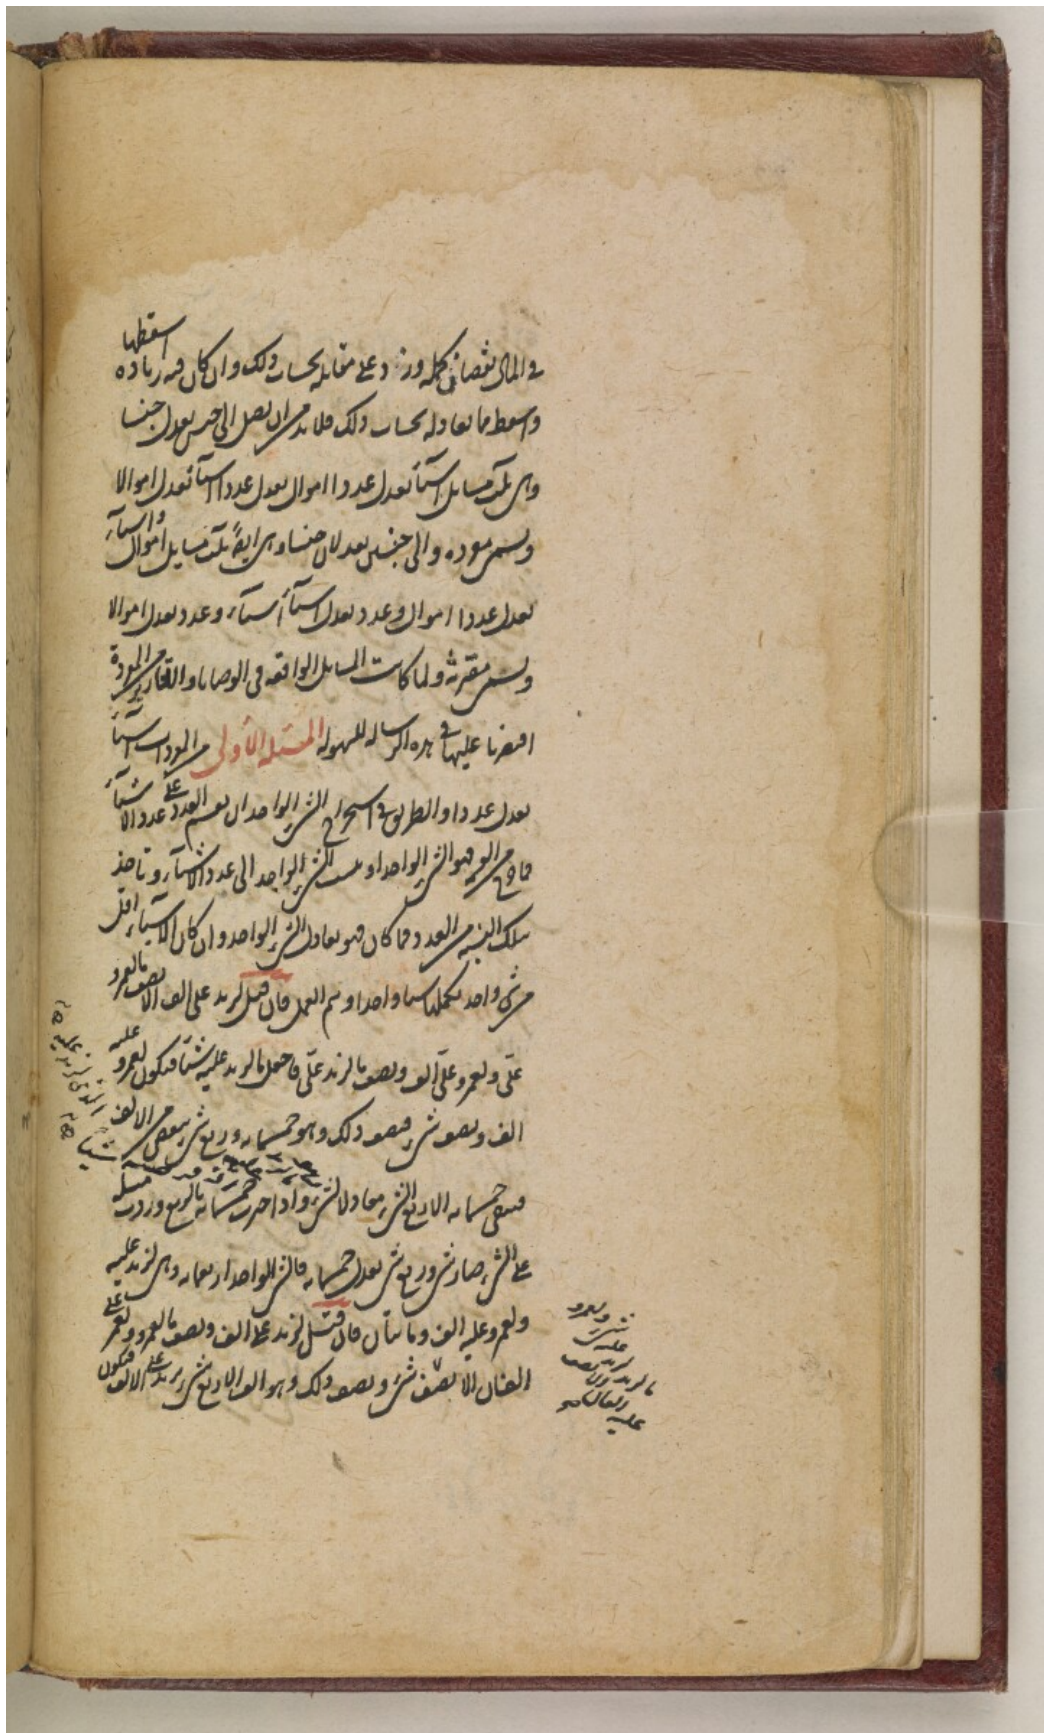 في المال نقصان فكمله وزد على مقابله بحساب ذلك وان كان فيه زيادة اسقطها
واسقط مما يعادله بحساب ذلك فلا بد من ان يصل الى جنس يعدل جنسا
وهي ثلث مسايل اشيآء تعدل عددا اموال تعدل عددا اشيآء تعدل اموالا
وتسمى مفرده والى جنسين يعدلان جنسا وهي ايضاً ثلث مسايل اموال واشيآء
تعدل عددا اموال وعدد تعدل اشيآء اشيآء وعدد تعدل اموالا
وتسمى مقترنة ولما كانت المسايل الواقعه في الوصايا والاقارير من المفردة
اقتصرنا عليها في هذه الرسالة للسهولة المسئلة الأولى من المفردات اشيآء
تعدل عددا والطريق في استخراج الشئ الواحد ان تقسم العدد على عدد الاشيآء
فما خرج من القسم فهو الشئ الواحد او تنسب الشئ الواحد الى عدد الاشيآء وتاخذ
بتلك النسبه من العدد فما كان فهو يعادل الشئ الواحد وان كان الاشياء اقل
من شئ واحد تكملها شيا واحدا وتتم العمل فان قيل لزيد على الف الا نصف ما لعمرو
علي ولعمرو علي الف ونصف ما لزيد علي فاجعل ما لزيد عليه شيئا فيكون لعمرو عليه
الف ونصف شئ فنصف ذلك وهو خمسمايه وربع شئ ينقص من الالف
فيبقى خمسمايه الا ربع الشئ معادلا لشئ واذا جبرت خمسمايه بالربع وزدت مثله
على الشئ صار شئ وربع شئ تعدل خمسمايه فالشئ الواحد اربعمايه وهي لزيد عليه
ولعمرو عليه الف ومايتان فان قيل لزيد على الف ونصف ما لعمرو ولعمرو على
الفان الا نصف شئ ونصف ذلك وهو الف الا ربع شئ يزيد على الالف فيكون